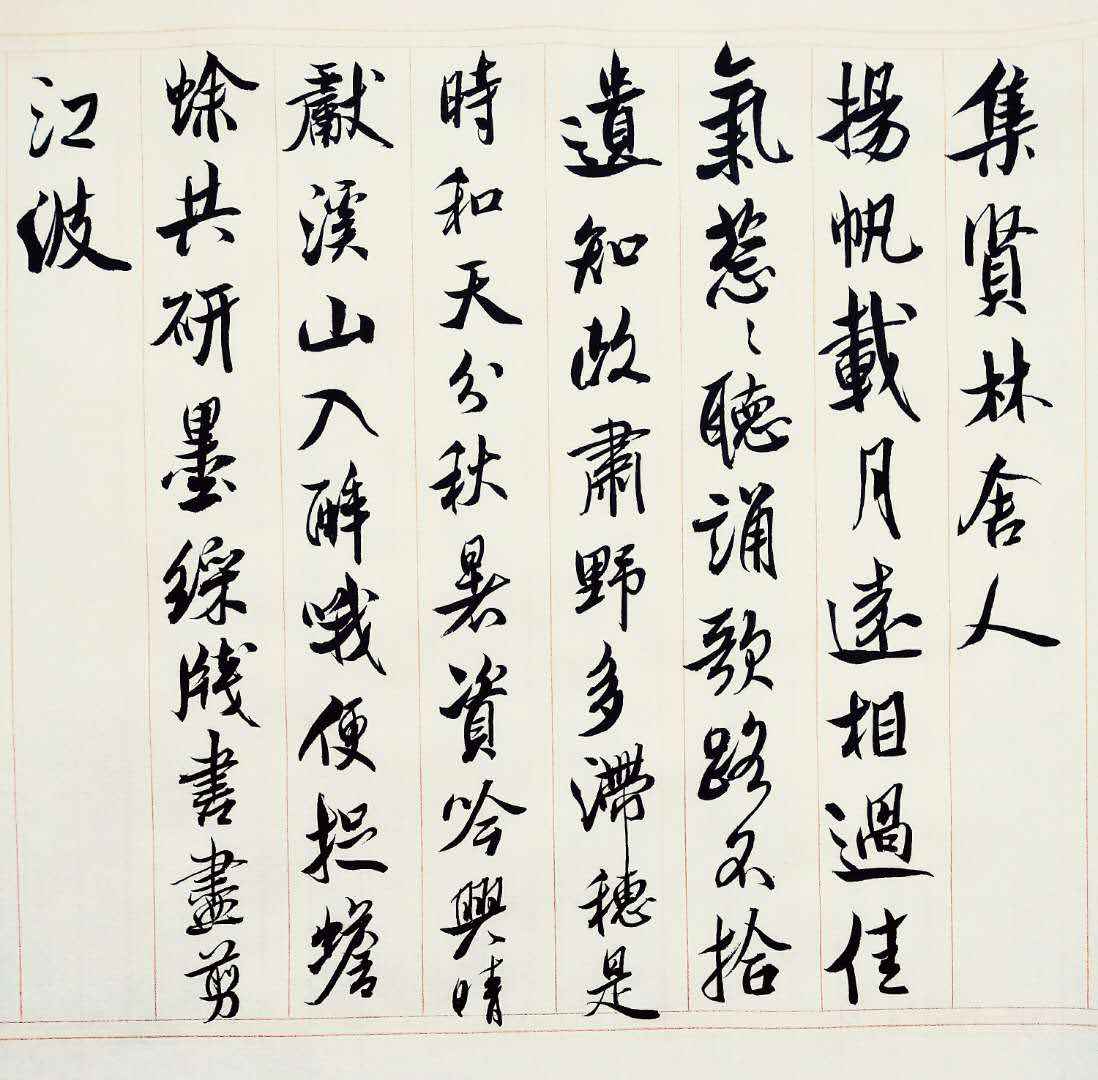 集賢林舍人
揚帆載月遠相過佳
氣葱〻聽誦歌路不拾
遺知政肅野多滯穗是
時和天分秋暑資吟興晴
獻溪山入醉哦便捉蟾
蜍共研墨綵牋書盡剪
江波